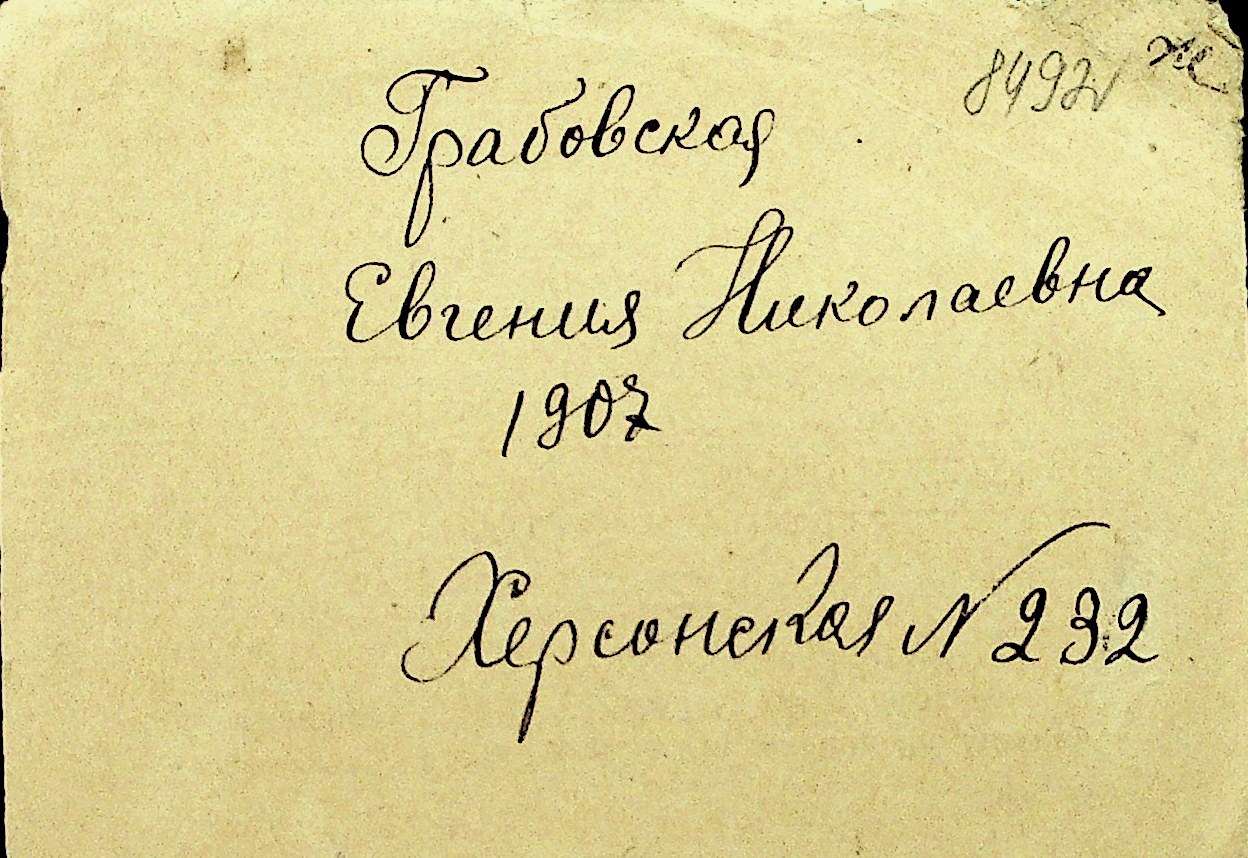 8492
Грабовская
Евгения Николаевна
1907
Херсонская N 232